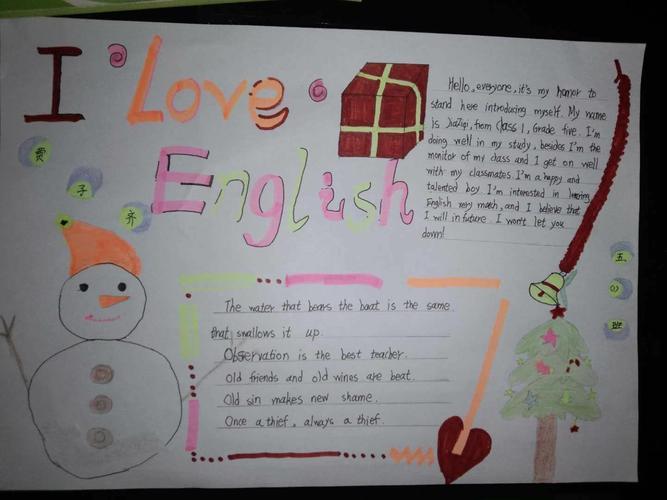 I Love
English
贾
子
齐
Hello, everyone, it's my honor to
stand here introducing myself. My name
is JiaZiqi, from Class 1, Grade five. I'm
doing well in my study, besides I'm the
monitor of my class and I get on well
with my classmates. I'm a happy and
talented boy I'm interested in
English very much, and I believe that
I will in future. I won't let you
down!
The water that bears the boat is the same
that swallows it up.
Observation is the best teacher.
Old friends and old wines are beat.
Old sin makes new shame.
Once a thief, always a thief.
五
班